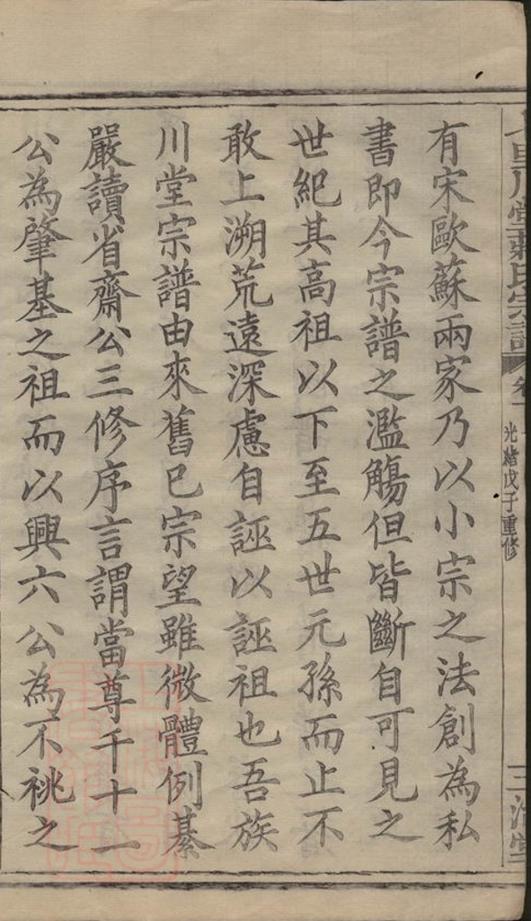 堂蔣氏宗譜
光緒戊子重修
有宋歐蘇兩家乃以小宗之法創為私
書即今宗譜之濫觴但皆斷自可見之
世紀其高祖以下至五世元孫而止不
敢上溯荒遠深慮自誣以誣祖也吾族
川堂宗譜由來舊已宗望雖微體例綦
嚴讀省齋公三修序言謂當尊千十一
公為肇基之祖而以興六公為不祧之